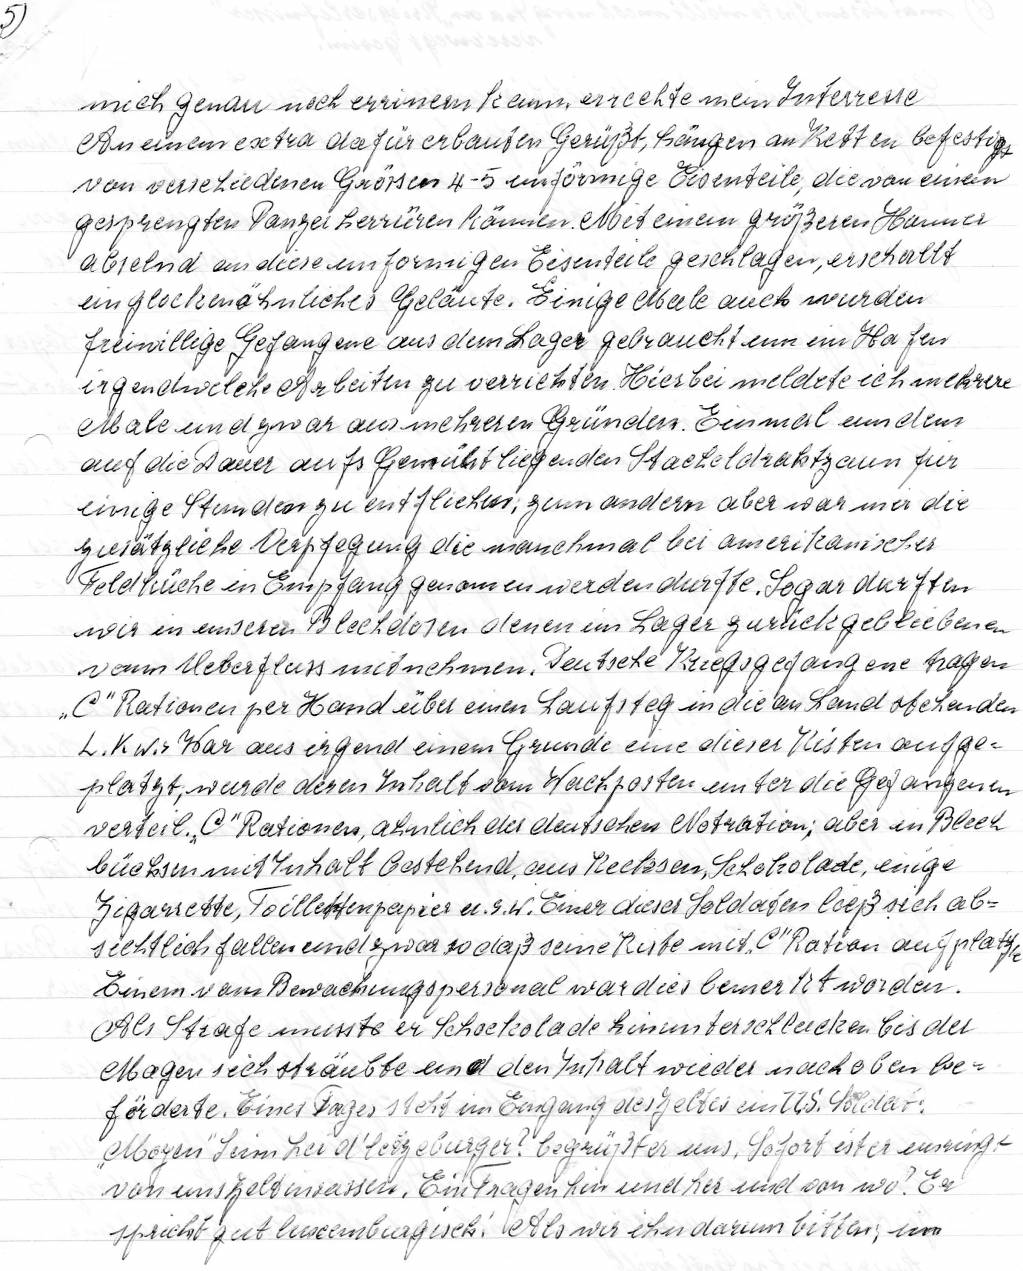 5)
mich genau noch errinern kann, errechte mein Interresse
An einem extra dafür erbauten Gerüßt, hängen an Ketten befestigt
von verschiedenen Grössen 4-5 unförmige Eisenteile, die von einem
gesprengten Panzer herrüren können. Mit einem größeren Hammer
abselnd an diese unformigen Eisenteile geschlagen, erschallt
ein glockenähnliches Geläute. Einige Male auch wurden
freiwillige Gefangene aus dem Lager gebraucht um im Hafen
irgendwelche Arbeiten zu verrichten. Hierbei meldete ich mehrere
Male und zwar aus mehreren Gründen. Einmal um dem
auf die Dauer aufs Gemüht liegenden Stacheldrahtzaun für
einige Stunden zu entfliehen; zum andern aber war mir die
zusätzliche Verpfegung die manchmal bei amerikanischer
Feldküche in Empfang genomen werden durfte. Sogar durften
wir in unseren Blechdosen denen im Lager zurückgebliebenen
vom Ueberfluss mitnehmen. Deutsche Kriegsgefangene tragen
„C" Rationen per Hand über einen Laufsteg in die an Land stehenden
L.K.w.s War aus irgend einem Grunde eine dieser Kisten aufge=
platzt, wurde deren Inhalt vom Wachposten unter die Gefangenen
verteil. „C" Rationen, ähnlich der deutschen Notration; aber in Blech
büchsen mit Inhalt bestehend, aus Kecksen, Schokolade, einige
Zigarrette, Toillettenpapier u.s.w. Einer dieser Soldaten ließ sich ab=
sichtlich fallen und zwar so daß seine Kiste mit „C" Ration aufplatzte
Einem vom Bewachungspersonal war dies bemerkt worden.
Als Strafe musste er Schockolade hinunterschlucken bis der
Magen sich sträubte und den Inhalt wieder nach oben be=
förderte. Eines Tages steht im Eingang des Zeltes ein U.S. Soldat:
„Moyen" Sinn hei d'letzeburger? begrüßt er uns. Sofort ist er umringt
von uns Zeltinsassen. Ein Fragen hin und her und von wo? Er
spricht gut luxemburgisch! Als wir ihn darum bitten, uns